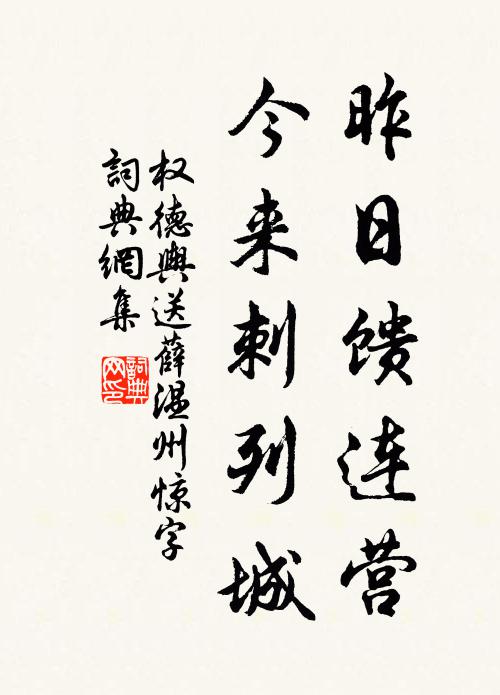 昨日馈连营
今来刺列城
权德輿送薛温州惊字
詞典網集
詞典
网印